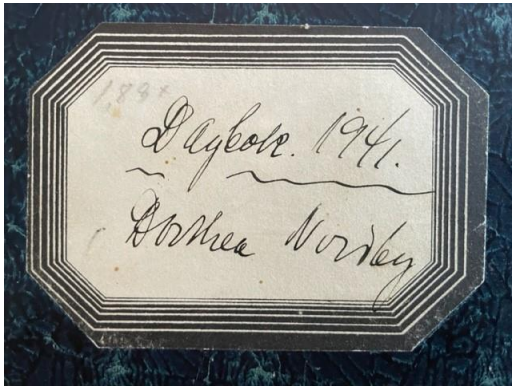 Dagbok. 1941.
Dorthea Nordby